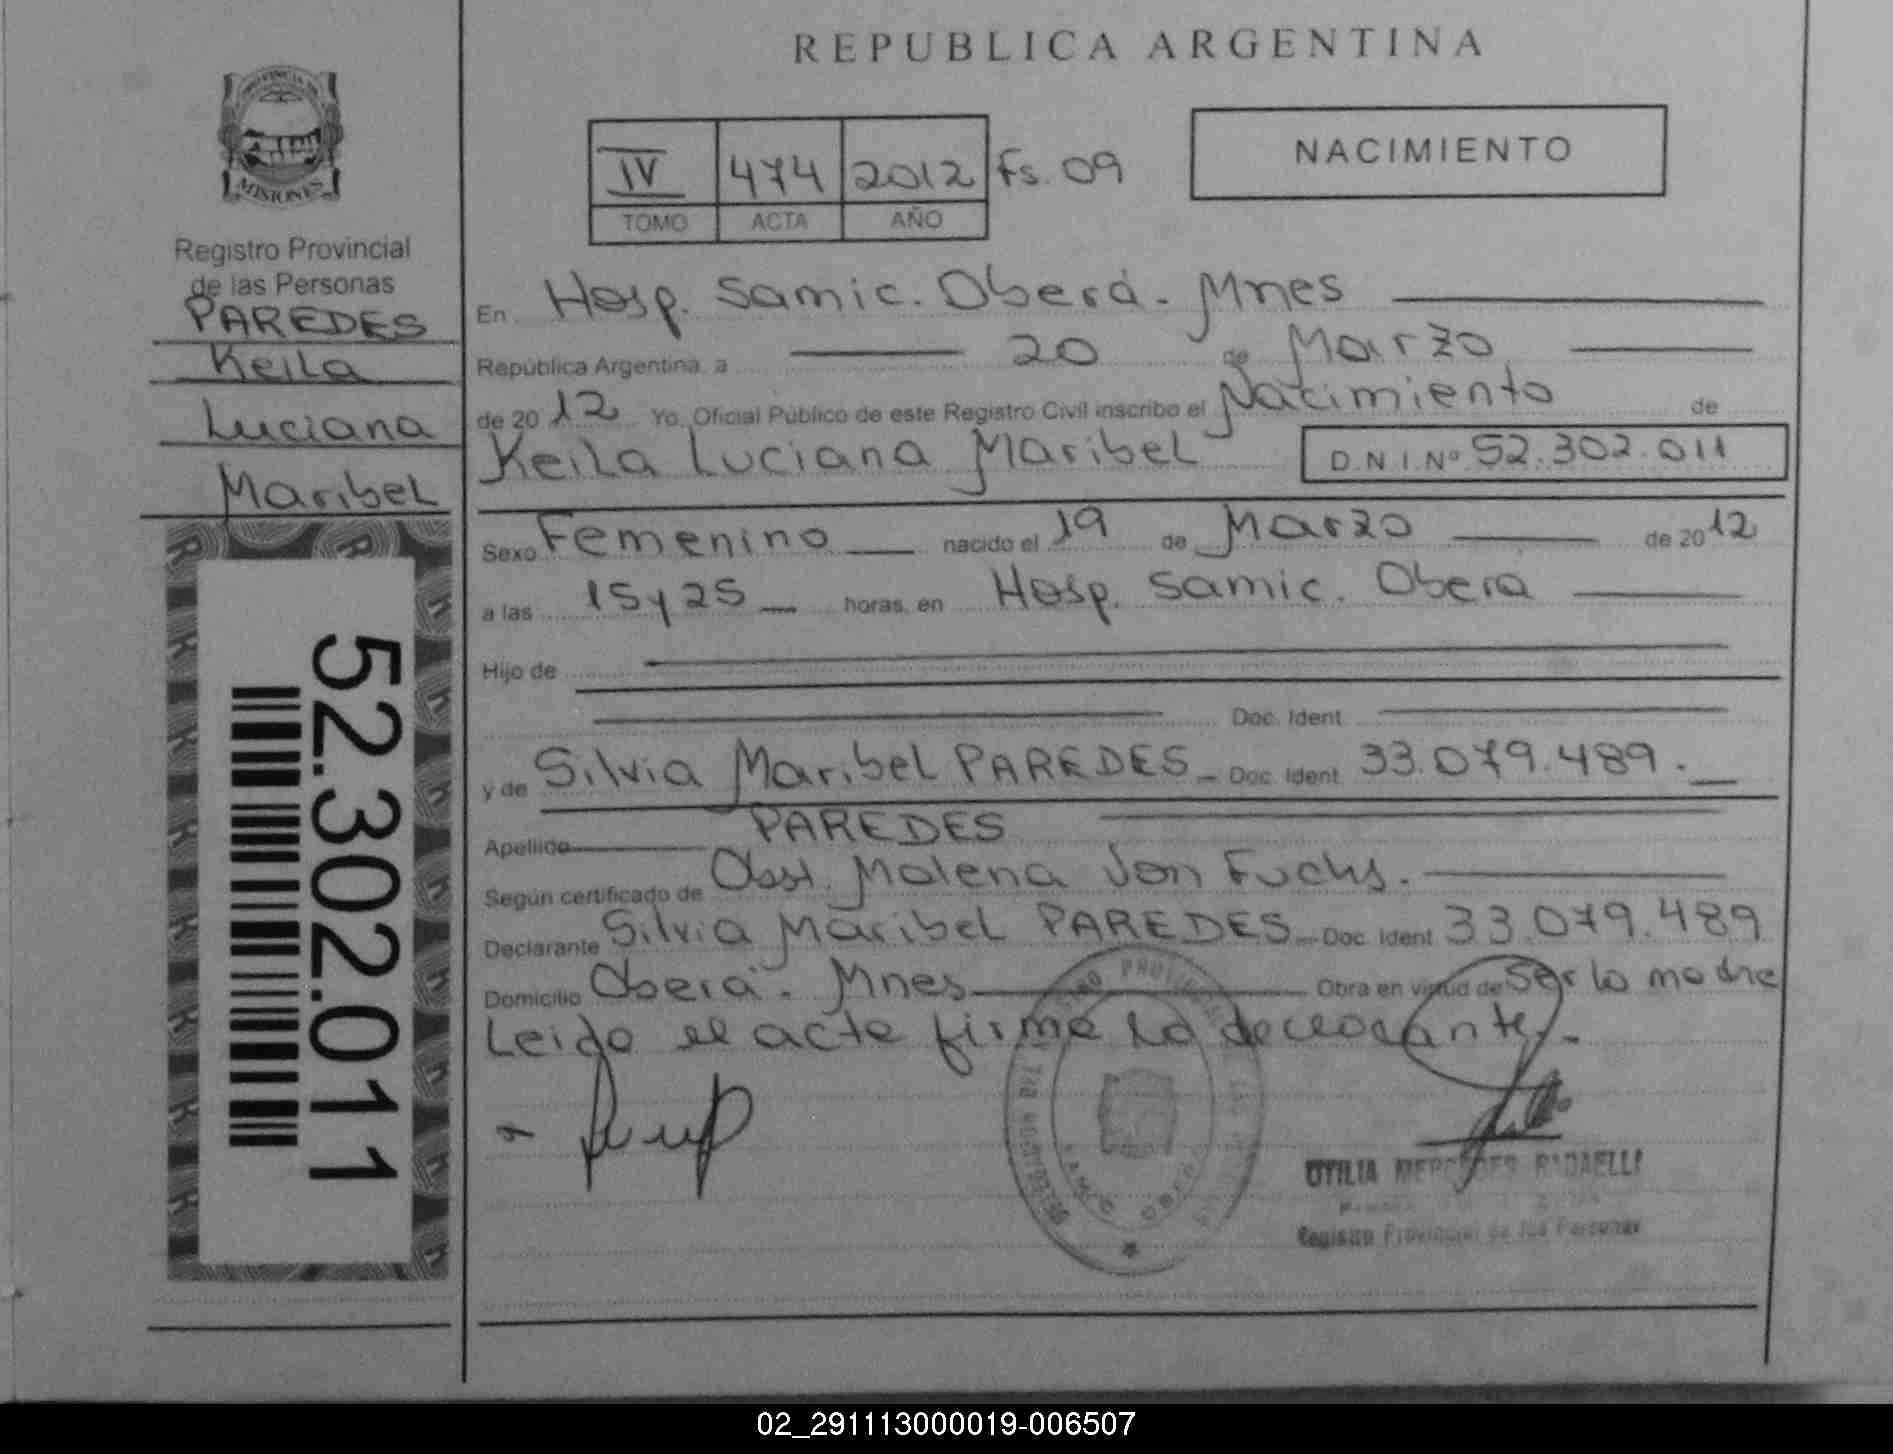 REPUBLICA ARGENTINA
PROVINCIA DE
MISIONES
Registro Provincial
de las Personas
PAREDES
Keila
Luciana
Maribel
52.302.011
IV 474 2012 Fs. 09
TOMO ACTA AÑO
NACIMIENTO
En Hosp. Samic. Oberá. Mnes
República Argentina, a 20 de Marzo
de 2012 Yo, Oficial Público de este Registro Civil inscribo el Nacimiento de
Keila Luciana Maribel D.N.I. Nº 52.302.011
Sexo Femenino nacido el 19 de Marzo de 2012
a las 15 y 25 horas, en Hosp. Samic. Oberá
Hijo de
Doc. Ident.
y de Silvia Maribel PAREDES Doc. Ident. 33.079.489.
Apellido PAREDES
Según certificado de Obst. Malena Von Fuchs.
Declarante Silvia Maribel PAREDES Doc. Ident. 33.079.489
Domicilio Oberá. Mnes Obra en virtud de Ser la madre
Leido el acta firma la declarante.
REGISTRO PROVINCIAL DE LAS PERSONAS
OBERA
OTILIA MERCEDES RADAELLI
Registro Provincial de las Personas
02_291113000019-006507